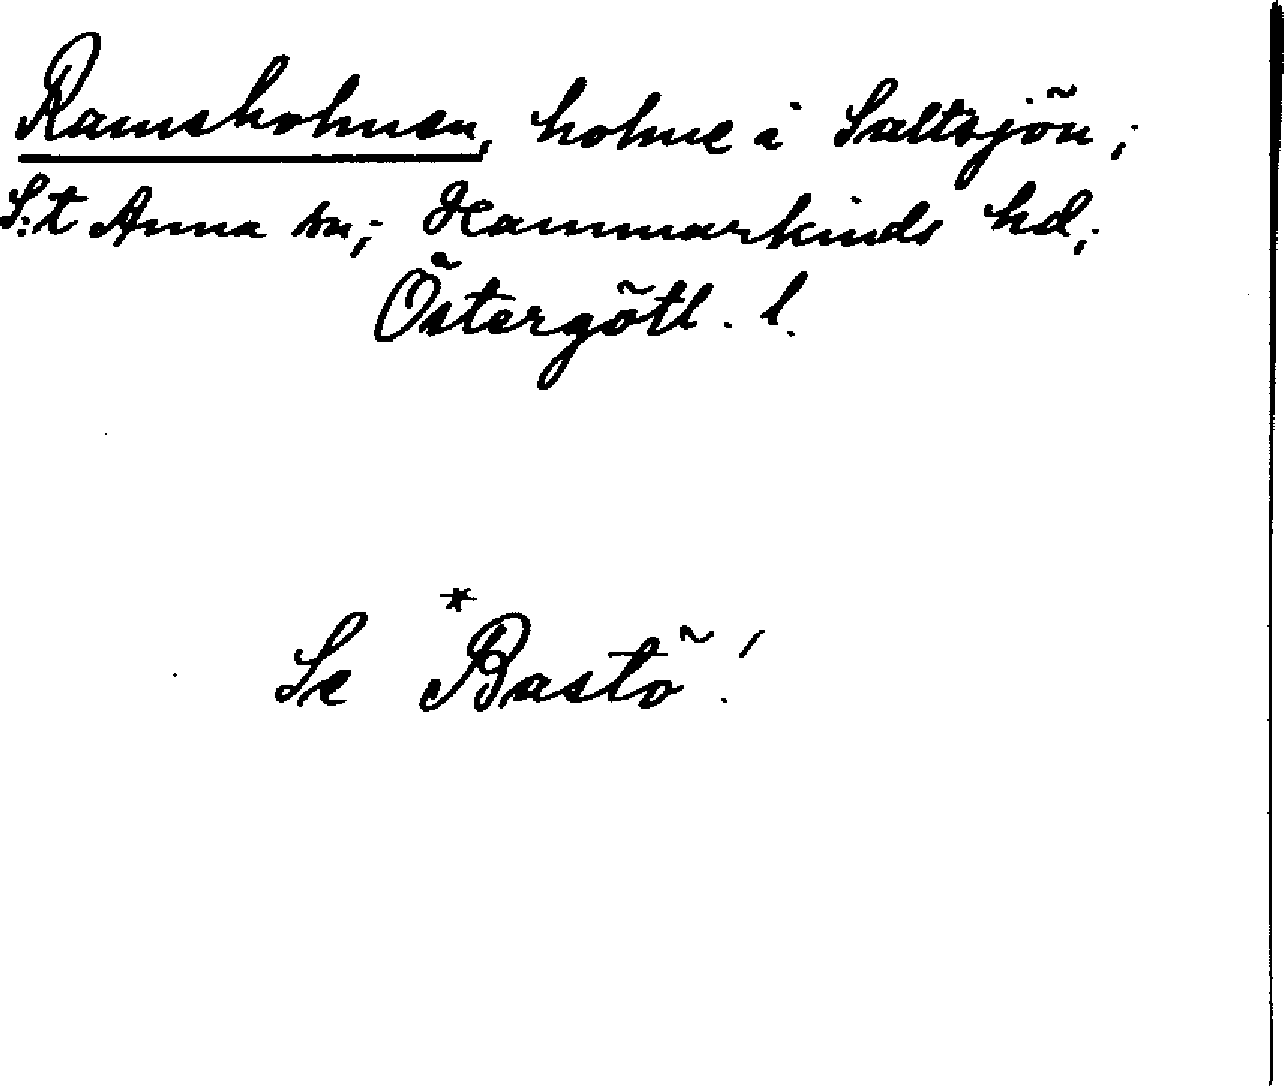 Ramsholmen, holme i Saltsjön;
S:t Anna sn; Hammarkinds hd;
Östergötl. l.
Se *Bastö!